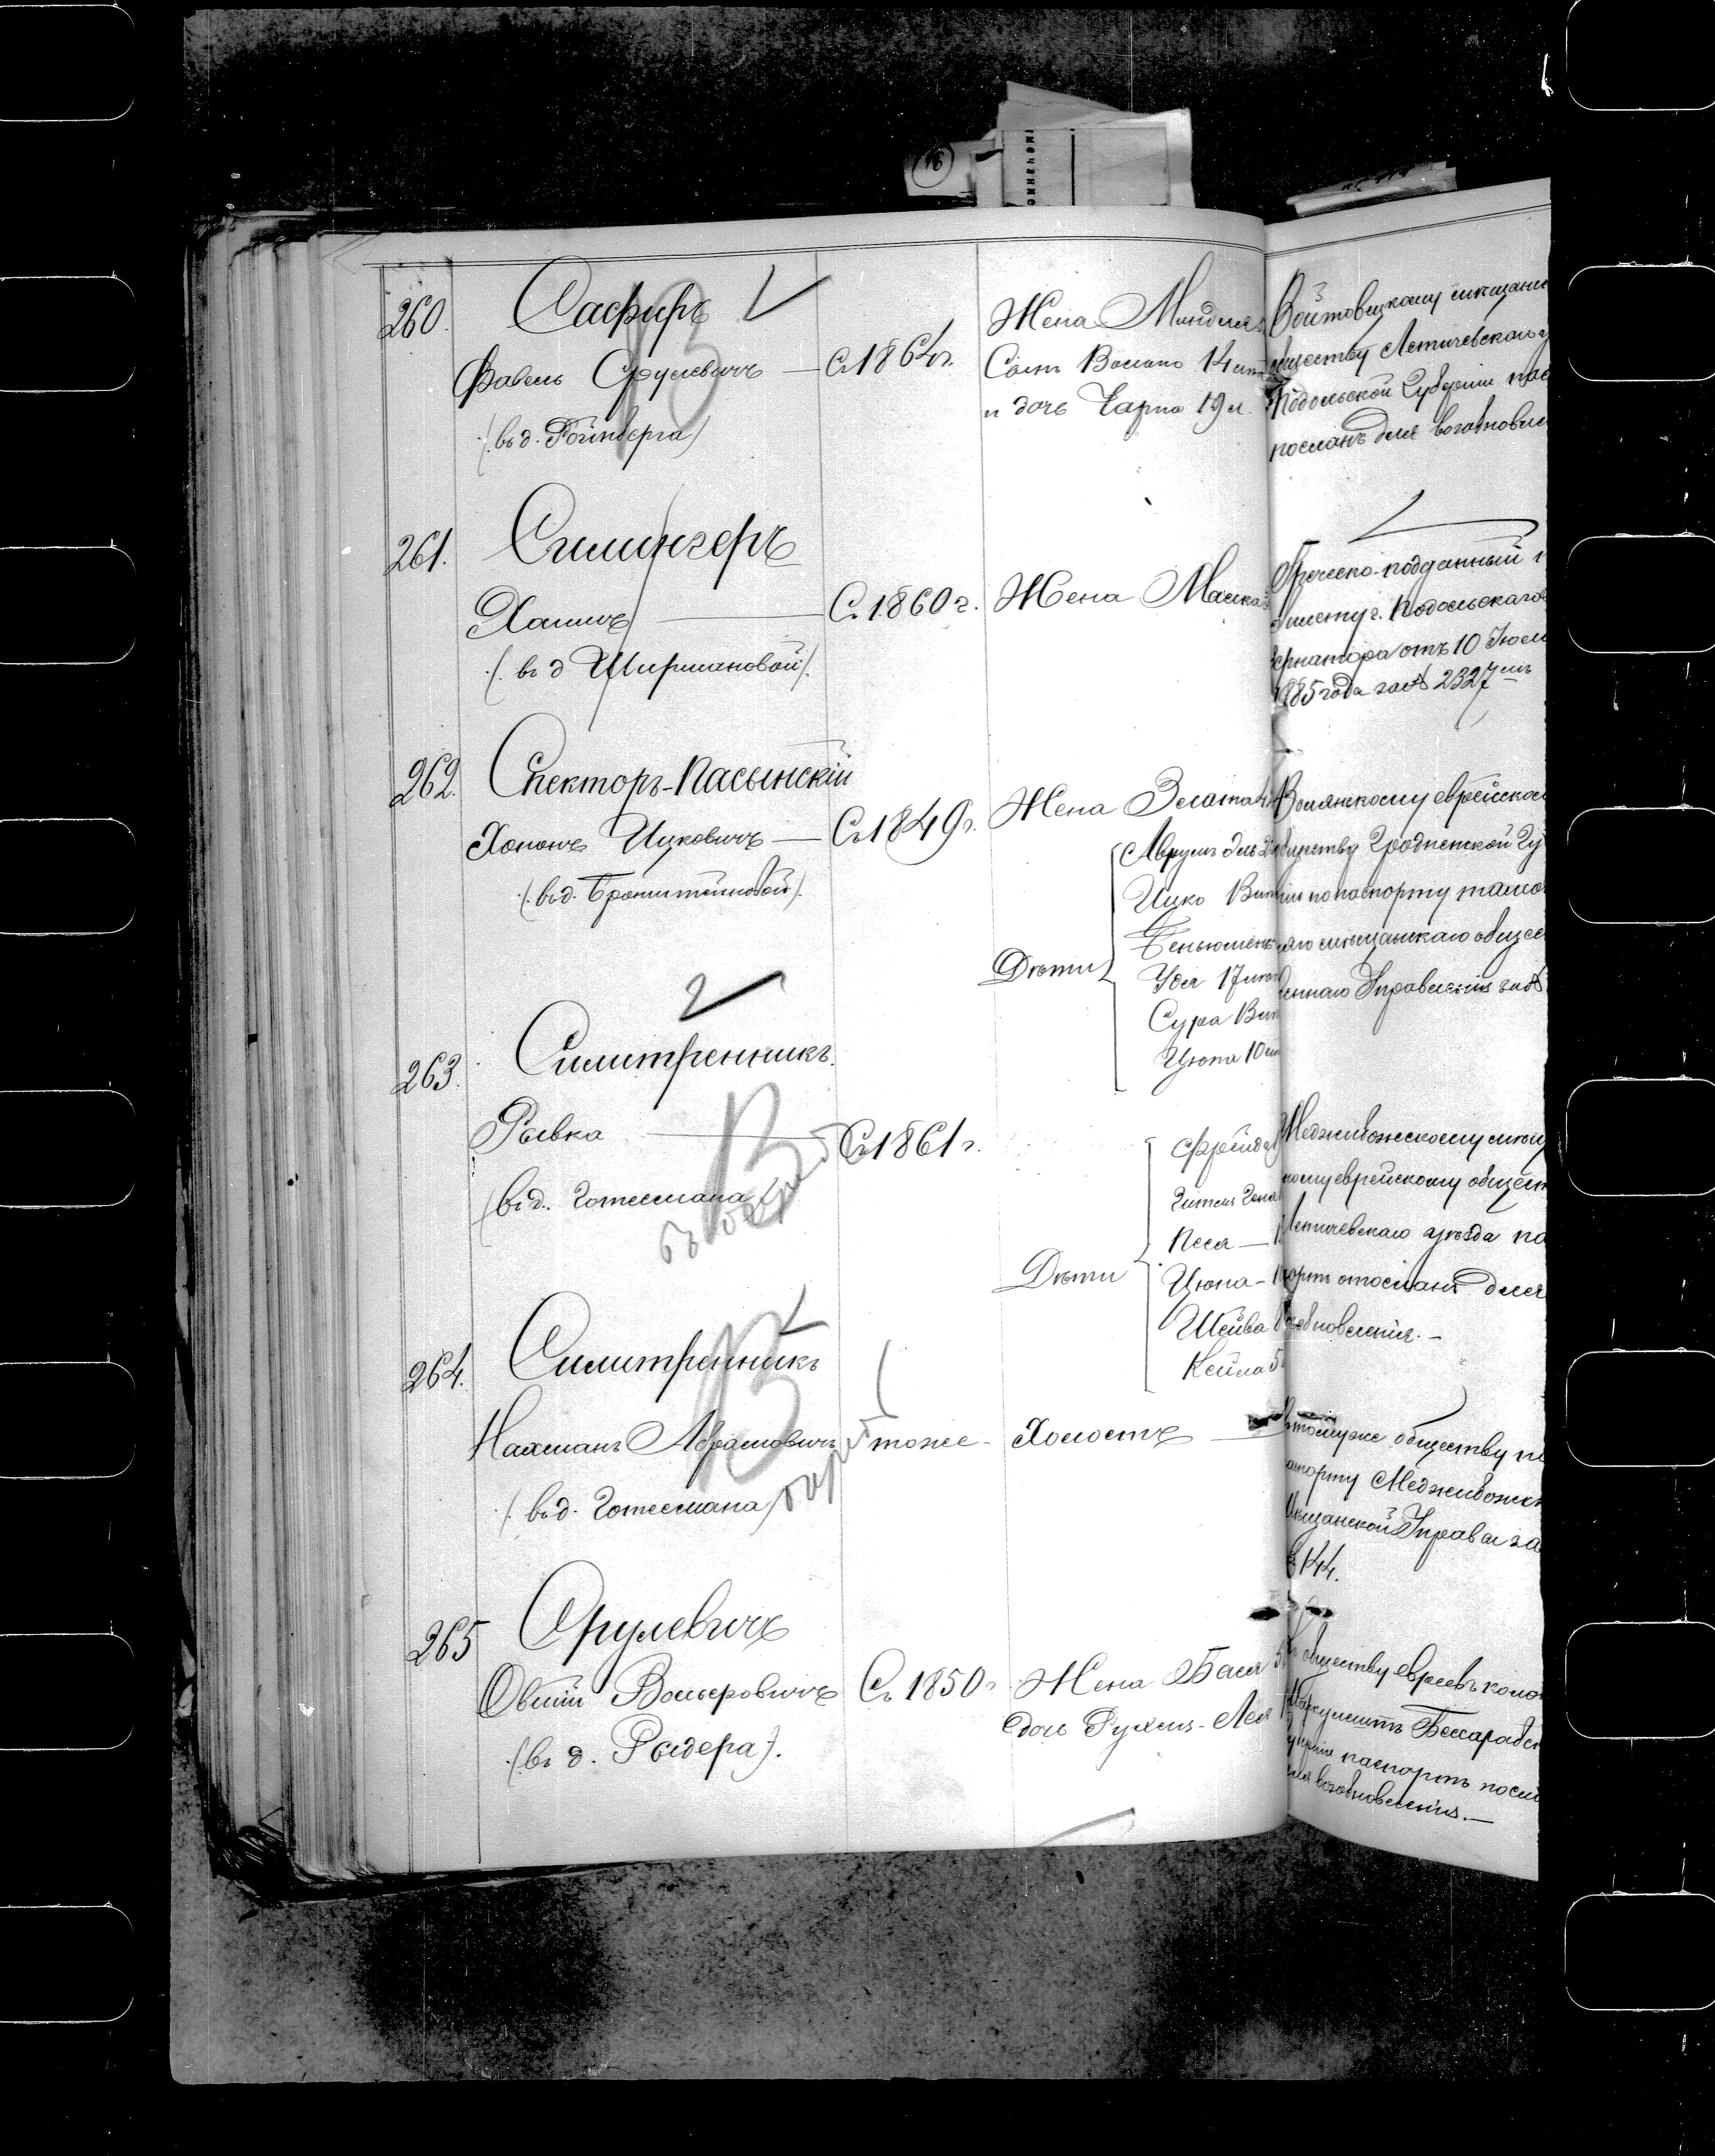 16
260. Сафиръ
Фавель Срулевичъ — Съ 1864 г.
(въ д. Гойнберга)
Жена Миндля
Сынъ Волько 14 лѣт
и дочь Чарна 19 л.
Войтовецкому мѣщанс
обществу Летичевскаго у
Подольской Губерніи пас
посланъ для возобновле
261. Силингеръ
Хаимъ — Съ 1860 г.
(въ д Ширмановой).
Жена Малка
Греческо-подданный п
билету г. Подольскаго
ернатора отъ 10 Іюл
1885 года за № 2327мъ
262. Спекторъ-Пасынскій
Хононъ Ицковичъ — Съ 1849 г.
(въ д. Бронштейновой).
Жена Злата
Дѣти
Аврумъ
Ицко
Беньюминъ
Удя 17 лѣт
Сура
Цюпа 10 лѣ
Волянскому еврейском
обществу Гродненской Гу
ніи по паспорту тамо
яго мѣщанскаго общес
еннаго Управленія за №
263. Силитренникъ.
Рывка — Съ 1861 г.
(въ д. Готесмана
Дѣти
Фрейда
Гитля Гена
Песя —
Цюпа —
Шейва
Кейла 5
Меджибожскому мѣщ
кому еврейскому общест
Летичевскаго уѣзда па
портъ отосланъ для
возобновленія. —
264. Силитренникъ
Нахманъ Абрамовичъ тоже — Холостъ —
(въ д. Готесмана)
Къ томуже обществу по
аспорту Меджибожск
Мѣщанской Управы за
№ 144.
265 Срулевичъ
Овшій Вольфовичъ Съ 1850 г
(въ д. Рыдера).
Жена Бася
дочь Рухль-Лея
Къ обществу евреевъ коло
Маркулештъ Бессарабск
Губерніи паспортъ посла
для возобновленія. —